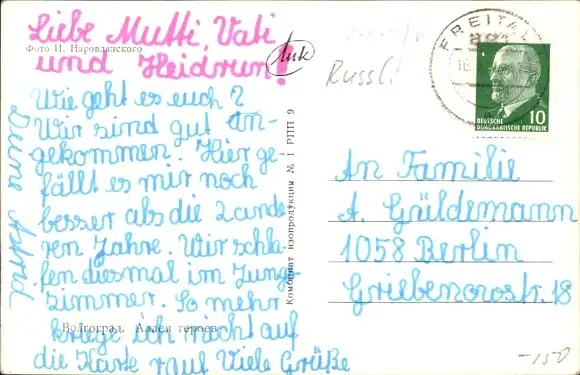 Liebe Mutti, Vati
und Heidrun!
Фото И. Наровлянского
Wie geht es euch?
Wir sind gut an-
gekommen. Hier ge-
fällt es mir noch
besser als die 2 ande
ren Jahre. Wir schla
fen diesmal im Jung-
zimmer. So mehr
kriege ich nicht auf
die Karte rauf Viele Grüße
Deine Astrid
Волгоград. Аллея героев
Комбинат изопродукции № 1 РПП 9
Russl.
FREITAL
10
DEUTSCHE
DEMOKRATISCHE REPUBLIK
An Familie
A. Güldemann
1058 Berlin
Griebenowstr. 18
-150